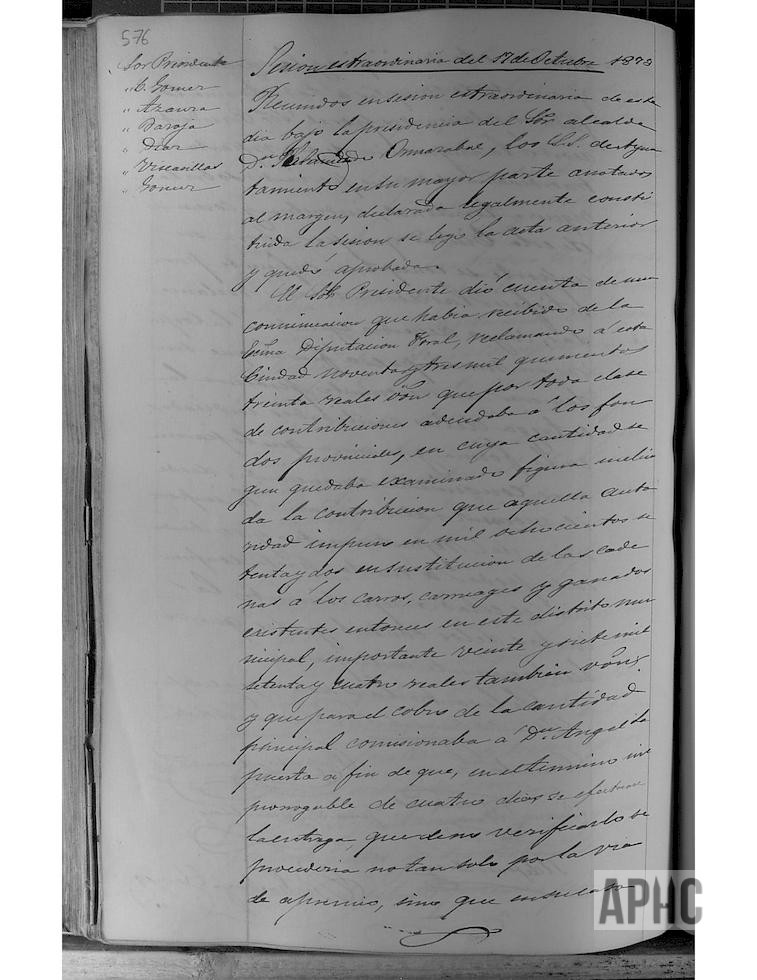 576
Sor Presidente
" C. Gomez
" Azcurra
" Baroja
" Diaz
" Viscasillas
" Gomez
Sesion estraordinaria del 17 de Octubre 1873
Reunidos en sesion estraordinaria de este
dia bajo la presidencia del Sor alcalde
Dn Ormazabal, los S.S. de Ayun
tamiento en su mayor parte anotados
al margen, declarada legalmente consti
tuida la sesion se leyó la acta anterior
y quedó aprobada.
El Sor Presidente dió cuenta de una
comunicacion que habia recibido de la
Ecsma Diputacion Foral, reclamando á esta
Ciudad noventa y tres mil quinientos
treinta reales von que por toda clase
de contribuciones adeudaba á los fon
dos provinciales, en cuya cantidad se
gun quedaba examinado figura inclui
da la contribucion que aquella auto
ridad impuso en mil ochocientos se
tenta y dos en sustitucion de las cade
nas á los carros, carruages y ganados
existentes entonces en este distrito mu
nicipal, importante veinte y siete mil
setenta y cuatro reales tambien von;
y que para el cobro de la cantidad
principal comisionaba á Dn Angel La
puerta a fin de que, en el termino im
prorrogable de cuatro dias se efectuase
la entrega, que de no verificarlo se
procederia no tan solo por la via
de apremio, sino que en su caso
APHC